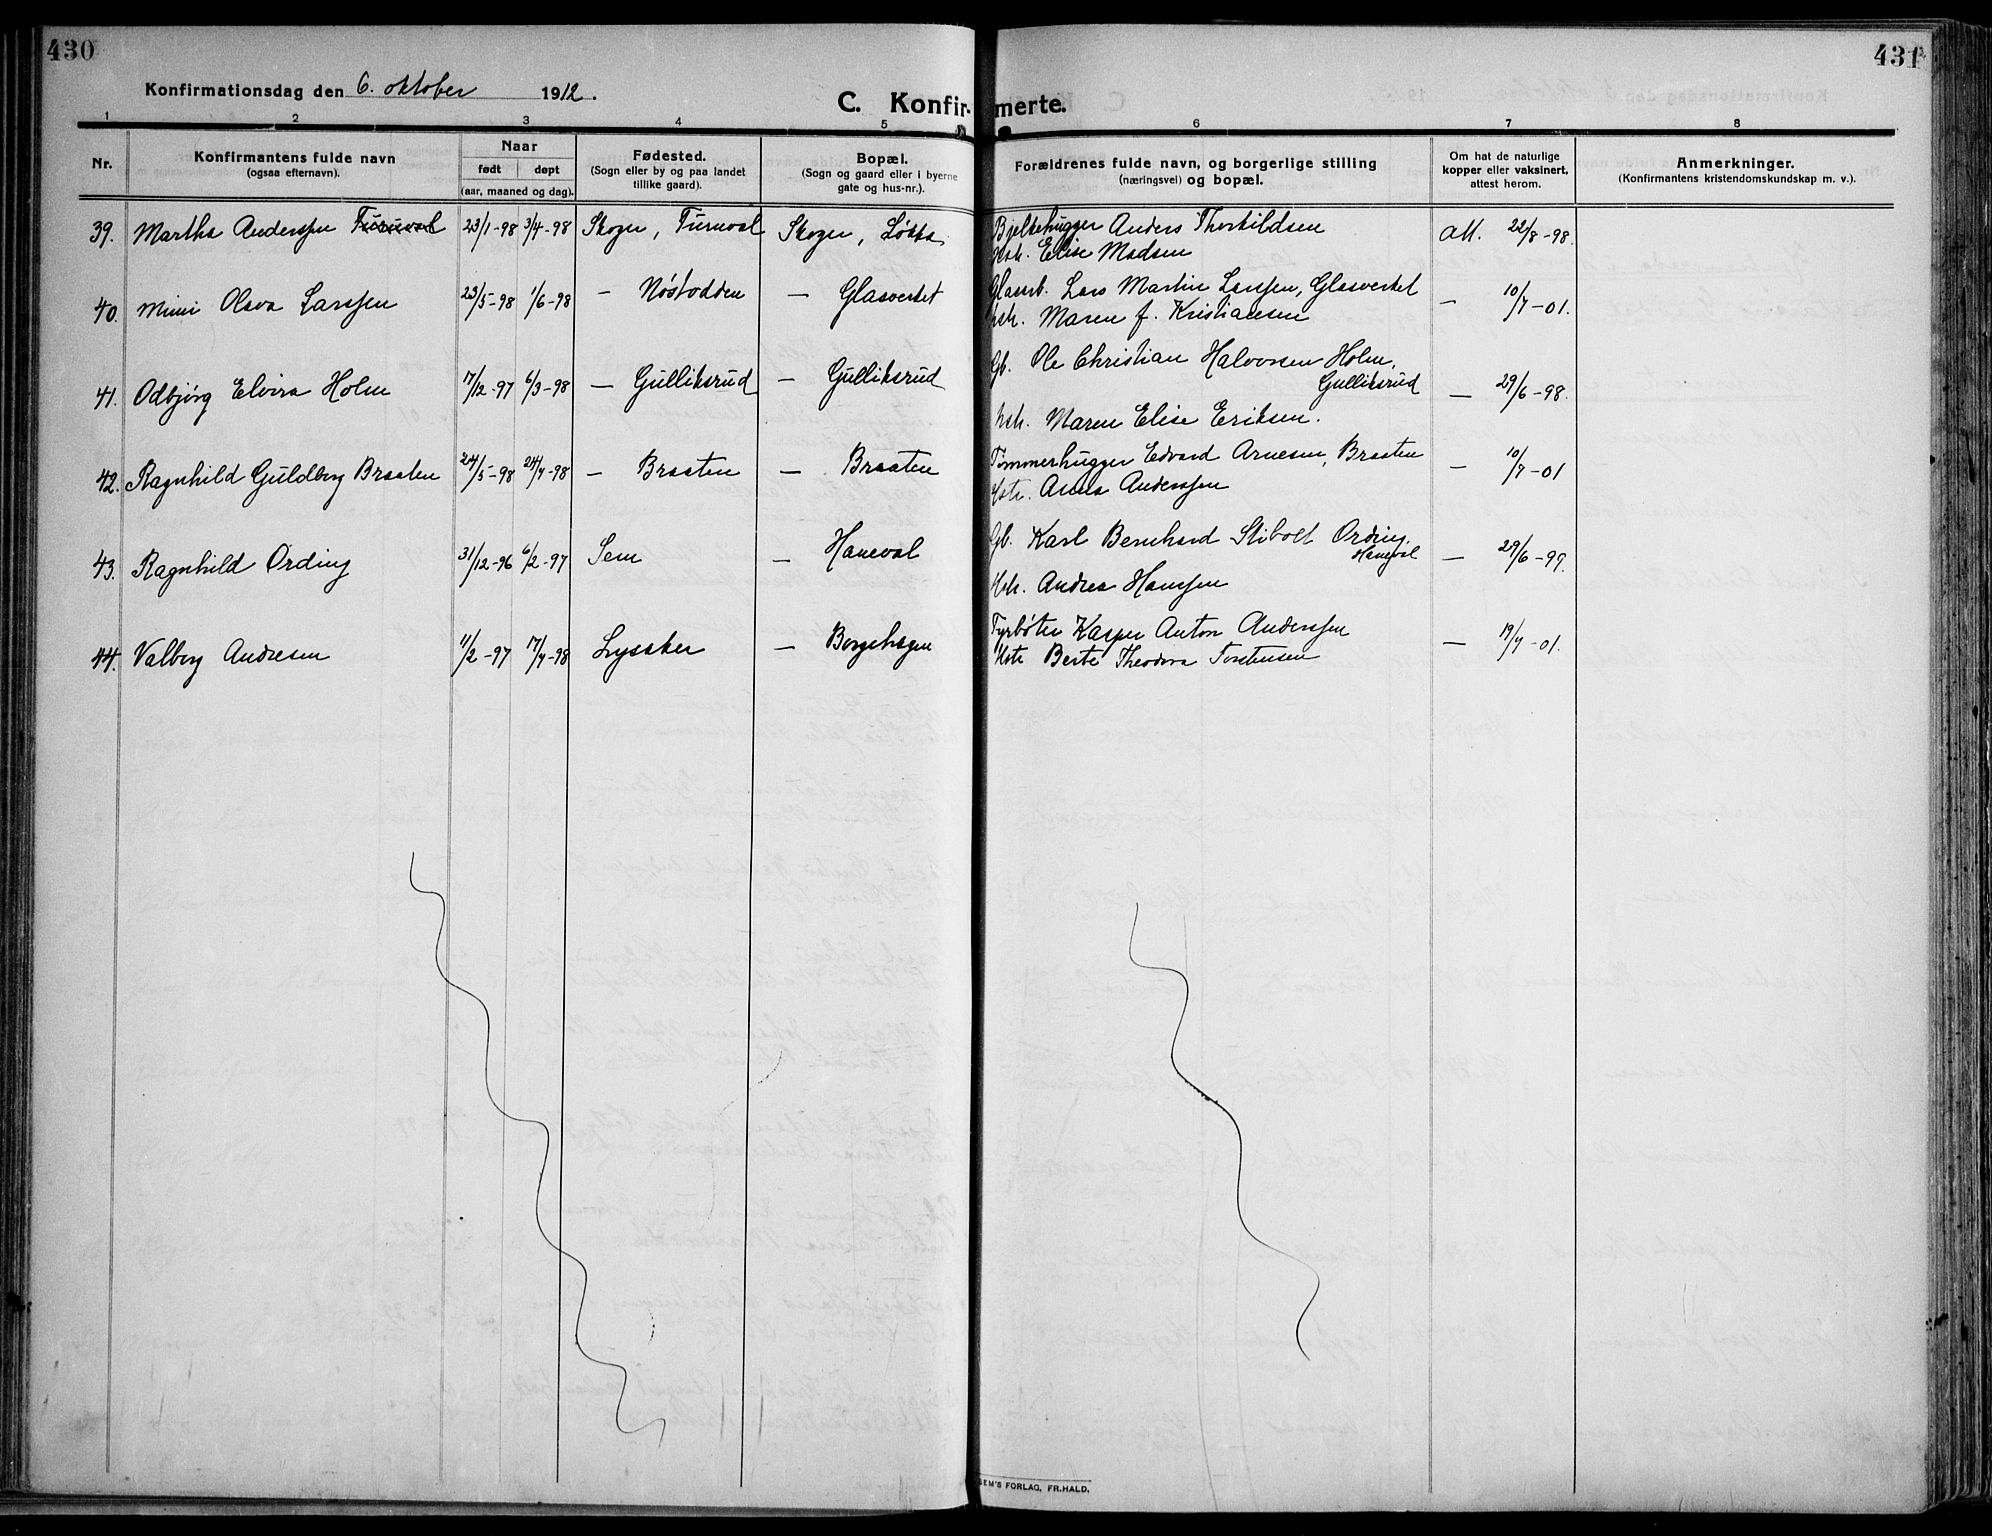 430
431
Konfirmationsdag den 6. oktober 1912.
C. Konfirmerte.
1 2 3 4 5 6 7 8
Nr.
Konfirmantens fulde navn
(ogsaa efternavn).
Naar
født døpt
(aar, maaned og dag).
Fødested.
(Sogn eller by og paa landet
tillike gaard).
Bopæl.
(Sogn og gaard eller i byerne
gate og hus-nr.).
Forældrenes fulde navn, og borgerlige stilling
(næringsvei) og bopæl.
Om hat de naturlige
kopper eller vaksinert,
attest herom.
Anmerkninger.
(Konfirmantens kristendomskundskap m. v.).
39. Martha Anderssen Furuval 23/1-98 3/4-98 Skoger, Furuval Skoger, Løkka Bjelkehugger Anders Thorkildsen
Hstr. Elise Madsen att. 22/8-98.
40. Mimi Olava Larssen 23/5-98 1/6-98 — Nøstodden — Glasverket Glasarb. Lars Martin Larssen, Glasverket
hstr. Maren f. Kristiansen — 10/7-01.
41. Odbjørg Elvira Holm 17/12-97 6/3-98 — Gulliksrud — Gulliksrud Gb. Ole Christian Halvorsen Holm,
Gulliksrud — 29/6-98.
hstr. Maren Elise Eriksen.
42. Ragnhild Guldberg Braaten 24/5-98 24/7-98 — Braaten — Braaten Tømmerhugger Edvard Arnesen, Braaten
Hstr. Anna Anderssen — 10/7-01
43. Ragnhild Ording 31/12-96 6/2-97 Sem — Haneval Gb. Karl Bernhard Stibolt Ording.
Haneval — 29/6-99.
Hstr. Andrea Hanssen
44. Valborg Andresen 11/2-97 17/7-98 Lysaker — Borgehagen Fyrbøter Kasper Anton Anderssen
Hstr Berte Theodora Torstensen — 19/7-01.
SEM'S FORLAG, FR.HALD.